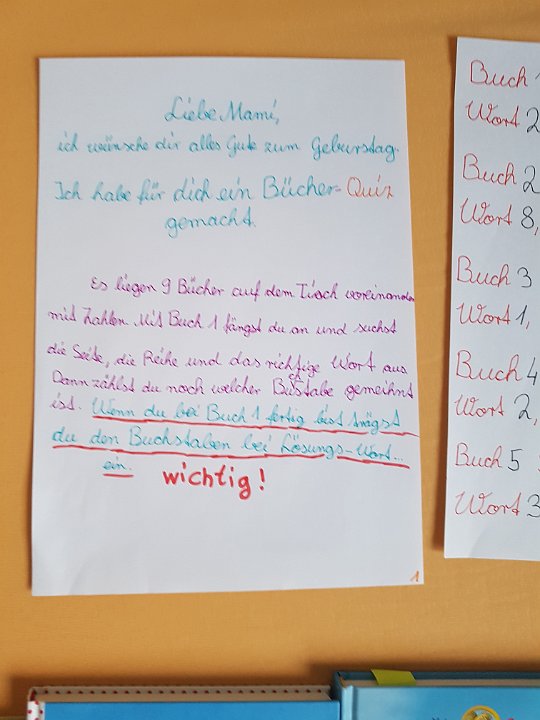 Liebe Mami,
ich wünsche dir alles Gute zum Geburstag.
Ich habe für dich ein Bücher-Quiz
gemacht.
Es liegen 9 Bücher auf dem Tisch voreinander
mit Zahlen. Mit Buch 1 fängst du an und suchst
die Seite, die Reihe und das richtige Wort aus
Dann zählst du noch welcher Buchstabe gemeihnt
ist. Wenn du bei Buch 1 fertig bist trägst
du den Buchstaben bei Lösungs-Wort...
ein. wichtig!
1
Buch
Wort 2
Buch 2
Wort 8,
Buch 3
Wort 1,
Buch 4
Wort 2,
Buch 5
Wort 3